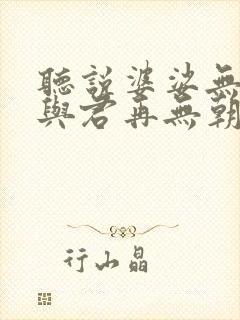 聽說婆娑無
與君再無朝
行山晶